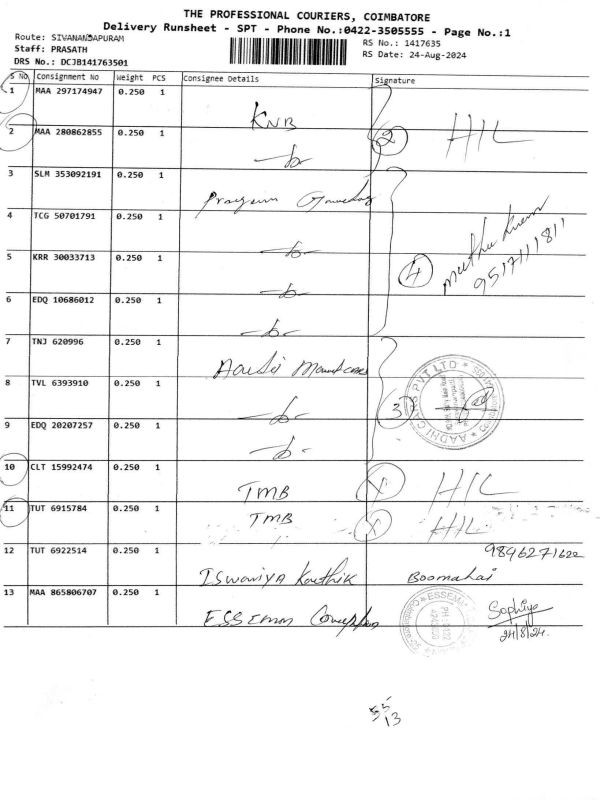 THE PROFESSIONAL COURIERS, COIMBATORE
Delivery Runsheet - SPT - Phone No.:0422-3505555 - Page No.:1
Route: SIVANANDAPURAM
RS No.: 1417635
Staff: PRASATH
RS Date: 24-Aug-2024
DRS No.: DCJB141763501
S No Consignment No Weight PCS Consignee Details Signature
1 MAA 297174947 0.250 1 KNB
2 MAA 280862855 0.250 1 2 HIL
3 SLM 353092191 0.250 1
4 TCG 50701791 0.250 1
5 KRR 30033713 0.250 1 4 9517111811
6 EDQ 10686012 0.250 1
7 TNJ 620996 0.250 1
8 TVL 6393910 0.250 1 3 AADHI CARS PVT LTD
9 EDQ 20207257 0.250 1
10 CLT 15992474 0.250 1 TMB 1 HIL
11 TUT 6915784 0.250 1 TMB 1 HIL
12 TUT 6922514 0.250 1 ISwariyA Karthik 9896271622
Boomahai
13 MAA 865806707 0.250 1 ESSEMM Sophiya
24/8/24.
55
13